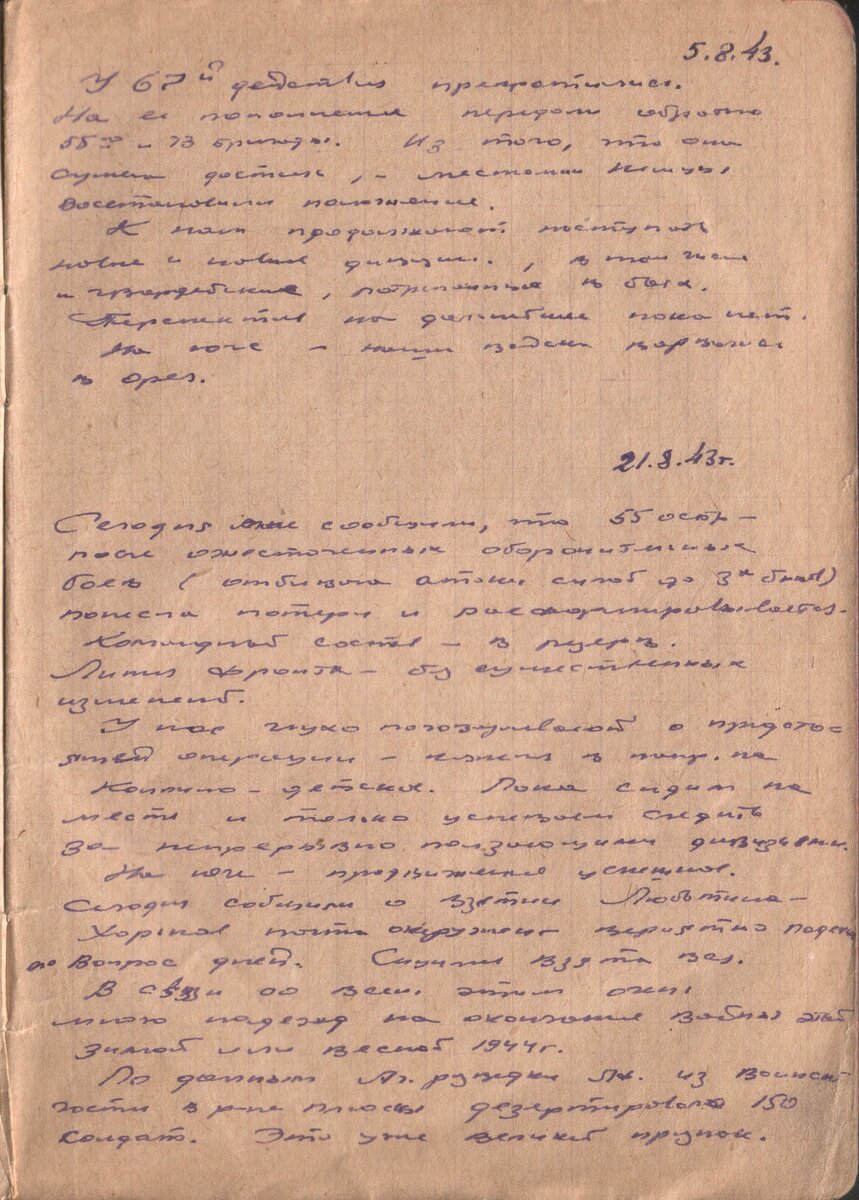 5.8.43.
У 67й действия прекратились.
На ее пополнение передали обратно
55ю и 73 бригады. Из того, что они
сумели достичь, – местами немцы
восстановили положение.
К нам продолжают поступать
новые и новые дивизии, в том числе
и гвардейские, потрепанные в боях.
Перспектив на дальнейшее пока нет.
На юге – наши ворвались
в Орел.
21.8.43г.
Сегодня мне сообщили, что 55 осбр –
после ожесточенных оборонительных
боев (отбивала атаки силой до 3х б-нов)
понесла потери и расформировывается.
Командный состав – в резерв.
Линия фронта – без существенных
изменений.
У нас глухо поговаривают о предсто=
ящей операции – в напр. на
Колпино – Детское. Пока сидим на
месте и только успеваем следить
за непрерывно ползающими дивизиями.
На юге – продвижение успешное.
Сегодня сообщили о взятии Люботина –
Харьков почти окружен вероятно падение
его вопрос дней. Сицилия взята вся.
В связи со всем этим очень
много надежд на окончание войны этой
зимой или весной 1944г.
По данным Аг. разведки Лф. из воинской
части в р-не Плюссы дезертировало 150
солдат. Это уже великий признак.